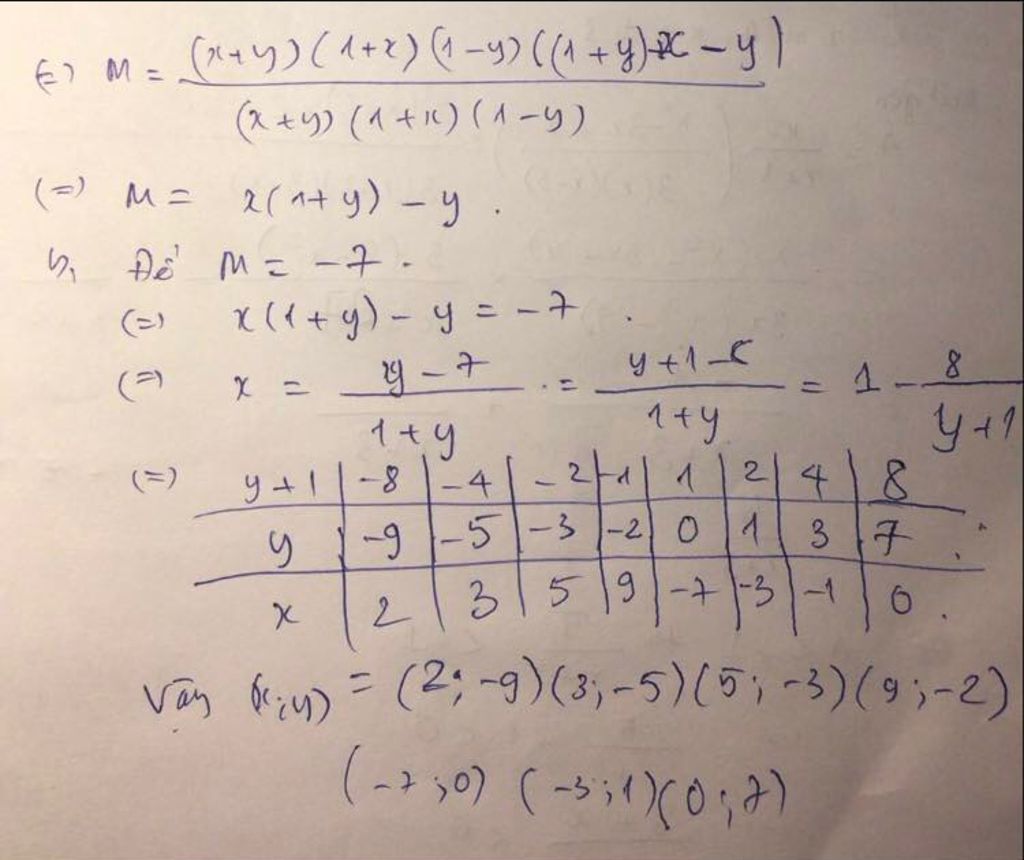 (=) M = (x+y)(1+x)(1-y)((1+y)x - y) / (x+y)(1+x)(1-y)
(=) M = x(1+y) - y .
b, Để M = -7 .
(=) x(1+y) - y = -7 .
(=) x = y-7 / 1+y = y+1-8 / 1+y = 1 - 8 / y+1
(=) y+1 | -8 | -4 | -2 | -1 | 1 | 2 | 4 | 8
y | -9 | -5 | -3 | -2 | 0 | 1 | 3 | 7 .
x | 2 | 3 | 5 | 9 | -7 | -3 | -1 | 0 .
Vậy (x;y) = (2;-9)(3;-5)(5;-3)(9;-2)
(-7;0) (-3;1)(0;7)